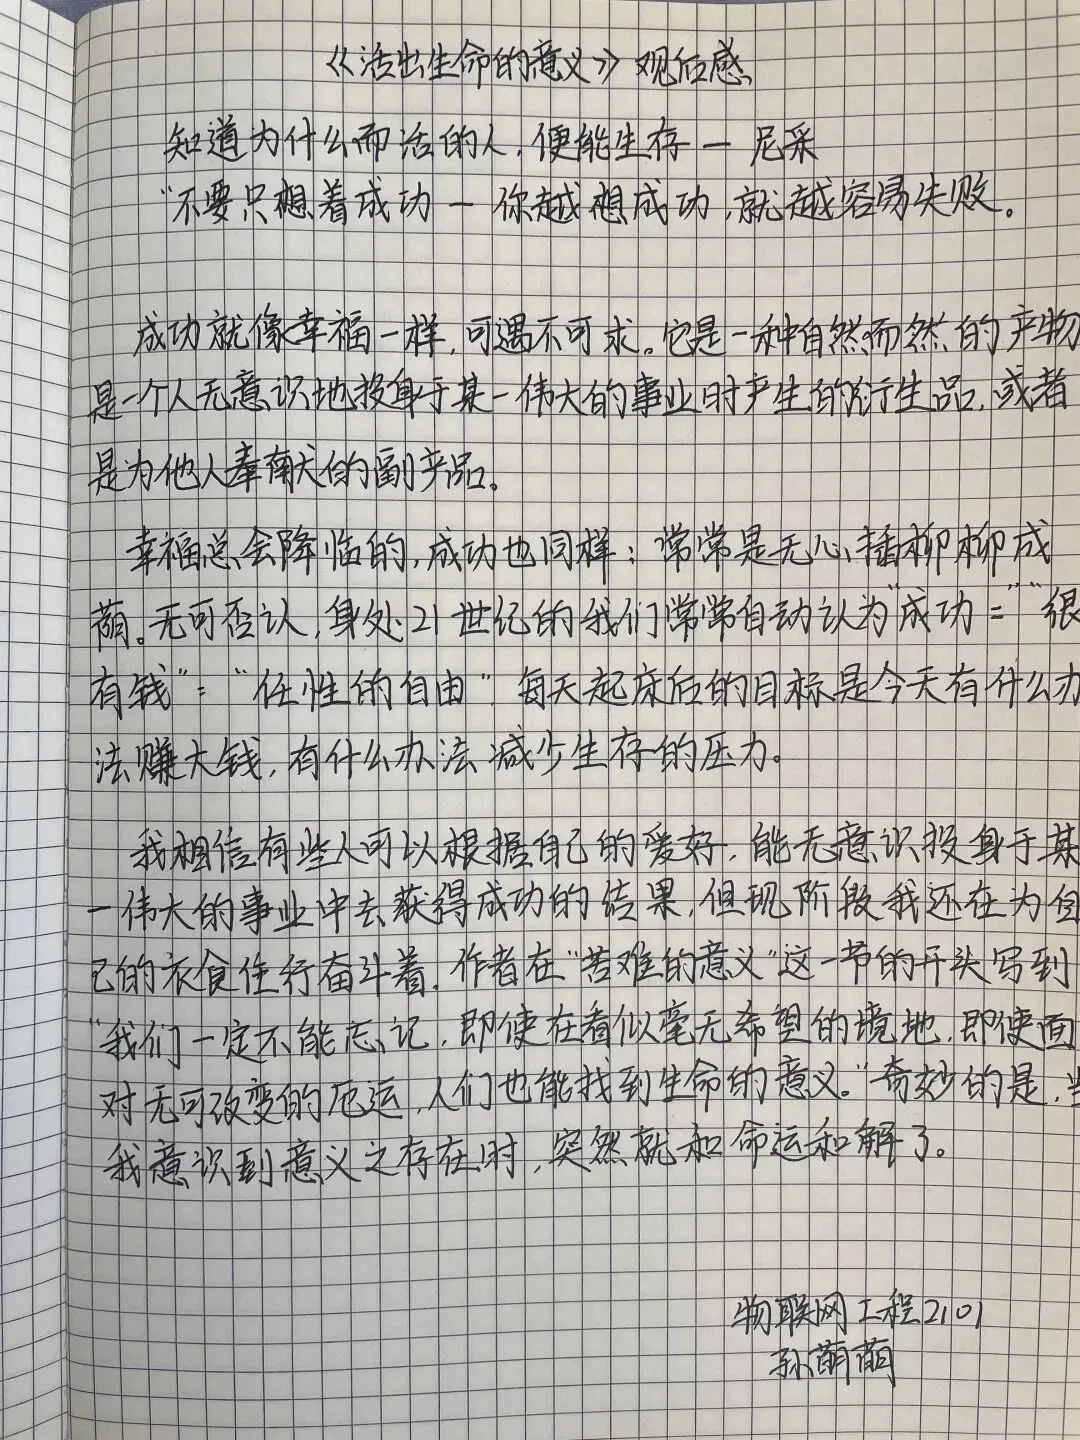 《活出生命的意义》观后感
知道为什么而活的人，便能生存 — 尼采
"不要只想着成功 — 你越想成功，就越容易失败。
成功就像幸福一样，可遇不可求。它是一种自然而然的产物
是一个人无意识地投身于某一伟大的事业时产生的衍生品，或者
是为他人奉献的副产品。
幸福总会降临的，成功也同样：常常是无心插柳柳成
荫。无可否认，身处21世纪的我们常常自动认为"成功"="很
有钱"="任性的自由"，每天起床后的目标是今天有什么办
法赚大钱，有什么办法减少生存的压力。
我相信有些人可以根据自己的爱好，能无意识投身于某
一伟大的事业中去获得成功的结果，但现阶段我还在为自
己的衣食住行奋斗着。作者在"苦难的意义"这一节的开头写到
"我们一定不能忘记，即使在看似毫无希望的境地，即使面
对无可改变的厄运，人们也能找到生命的意义。"奇妙的是，当
我意识到意义之存在时，突然就和命运和解了。
物联网工程2101
孙萌萌